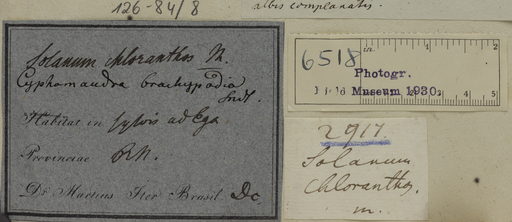 126-84/8
albis complanatis.
Solanum chloranthos M.
Cyphomandra brachypodia
Sndt.
Habitat in sylvis ad Ega
Provinciae R.N.
Dr. Martius Iter Brasil. Dc
6518
in. 1 2
Photogr.
Field Museum 1930.
1 2 3 4 5
2917.
Solanum
chloranthos.
m.